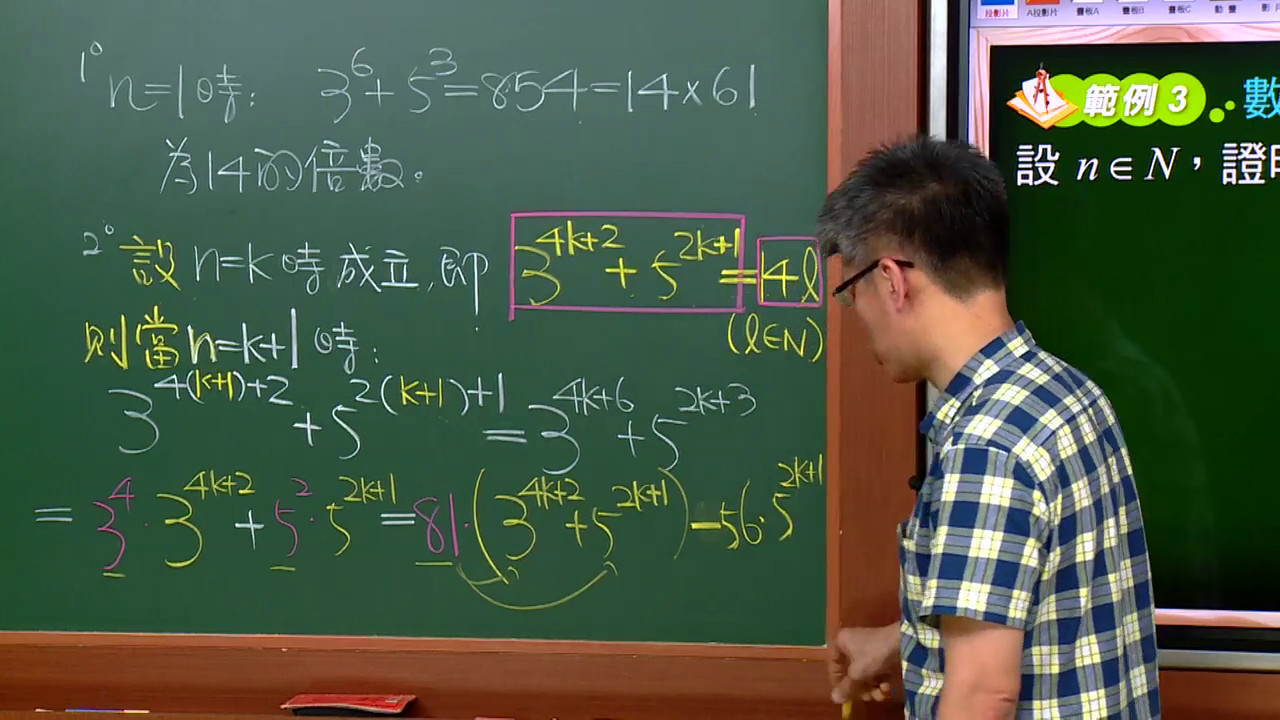 1° n=1時: 3^6+5^3=854=14×61
為14的倍數。
2° 設n=k時成立,即 3^{4k+2}+5^{2k+1}=14ℓ
(ℓ∈N)
則當n=k+1時:
3^{4(k+1)+2}+5^{2(k+1)+1}=3^{4k+6}+5^{2k+3}
=3^4·3^{4k+2}+5^2·5^{2k+1}=81·(3^{4k+2}+5^{2k+1})-56·5^{2k+1}
投影片 A投影片 疊板A 疊板B 疊板C
範例 3 數
設 n∈N,證